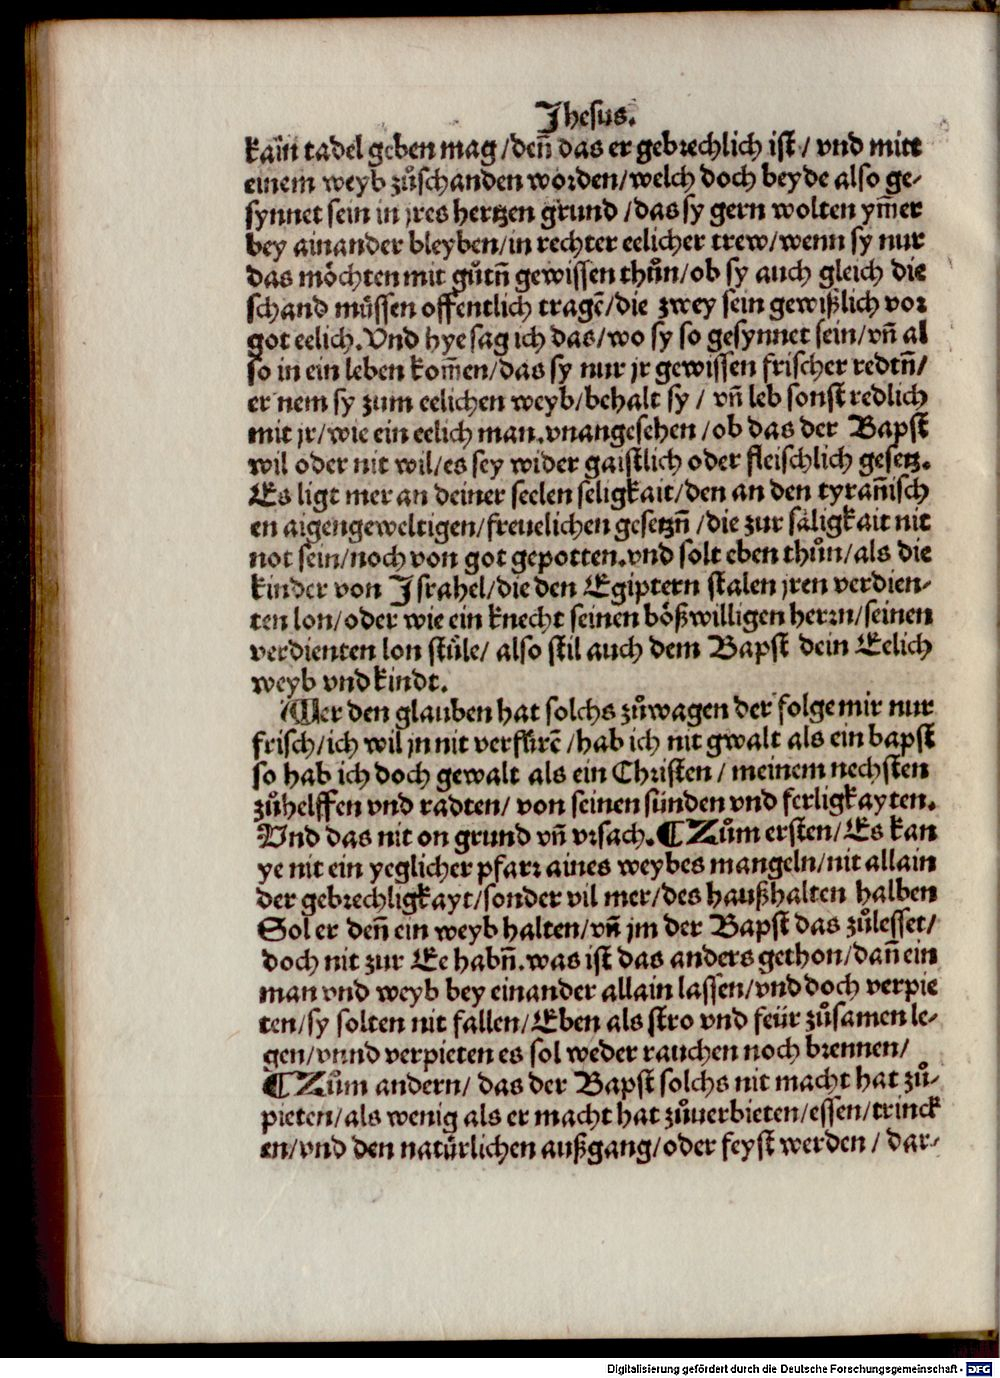 Jhesus.
kain tadel geben mag/denñ das er gebrechlich ist/ vnd mitt
einem weyb zůschanden worden/welch doch beyde also ge-
synnet sein in jres hertzen grund/das sy gern wolten ym̃er
bey ainander bleyben/in rechter eelicher trew/wenn sy nur
das möchten mit gůtñ gewissen thůn/ob sy auch gleich die
schand müssen offentlich tragẽ/die zwey sein gewißlich vor
got eelich.Vnd hye sag ich das/wo sy so gesynnet sein/vñ al
so in ein leben kom̃en/das sy nur jr gewissen frischer redtñ/
er nem sy zum eelichen weyb/behalt sy/ vñ leb sonst redlich
mit jr/wie ein eelich man.vnangesehen/ob das der Bapst
wil oder nit wil/es sey wider gaistlich oder fleischlich gesetz.
Es ligt mer an deiner seelen seligkait/den an den tyrañisch
en aigengeweltigen/freuelichen gesetzñ/die zur säligkait nit
not sein/noch von got gepotten.vnd solt eben thůn/als die
kinder von Israhel/die den Egiptern stalen jren verdien-
ten lon/oder wie ein knecht seinen bößwilligen herrn/seinen
verdienten lon stüle/ also stil auch dem Bapst dein Eelich
weyb vnd kindt.
Wer den glauben hat solchs zůwagen der folge mir nur
frisch/ich wil jn nit verfürẽ/hab ich nit gwalt als ein bapst
so hab ich doch gewalt als ein Christen/ meinem nechsten
zůhelffen vnd radten/ von seinen sünden vnd ferligkayten.
Vnd das nit on grund vñ vrsach.¶Zům ersten/Es kan
ye nit ein yeglicher pfarr aines weybes mangeln/nit allain
der gebrechligkayt/sonder vil mer/des haußhalten halben
Sol er deñ ein weyb halten/vñ jm der Bapst das zůlesset/
doch nit zur Ee habñ.was ist das anders gethon/dañ ein
man vnd weyb bey einander allain lassen/vnd doch verpie
ten/sy solten nit fallen/Eben als stro vnd feür zůsamen le-
gen/vnnd verpieten es sol weder rauchen noch brennen/
¶Zům andern/ das der Bapst solchs nit macht hat zů-
pieten/als wenig als er macht hat zůuerbieten/essen/trinck
en/vnd den natürlichen außgang/oder feyst werden/ dar-
Digitalisierung gefördert durch die Deutsche Forschungsgemeinschaft - DFG